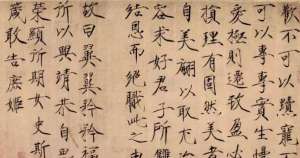 歡不可以黷
可以專專實生慢
愛極則遷致盈必
損理有固然美者
自美翩以取尤
容求好君子所讎
結恩而絕職此之
故曰翼翼矜矜福
所以興靖恭自思
榮顯所期女史斯
箴敢告庶姬